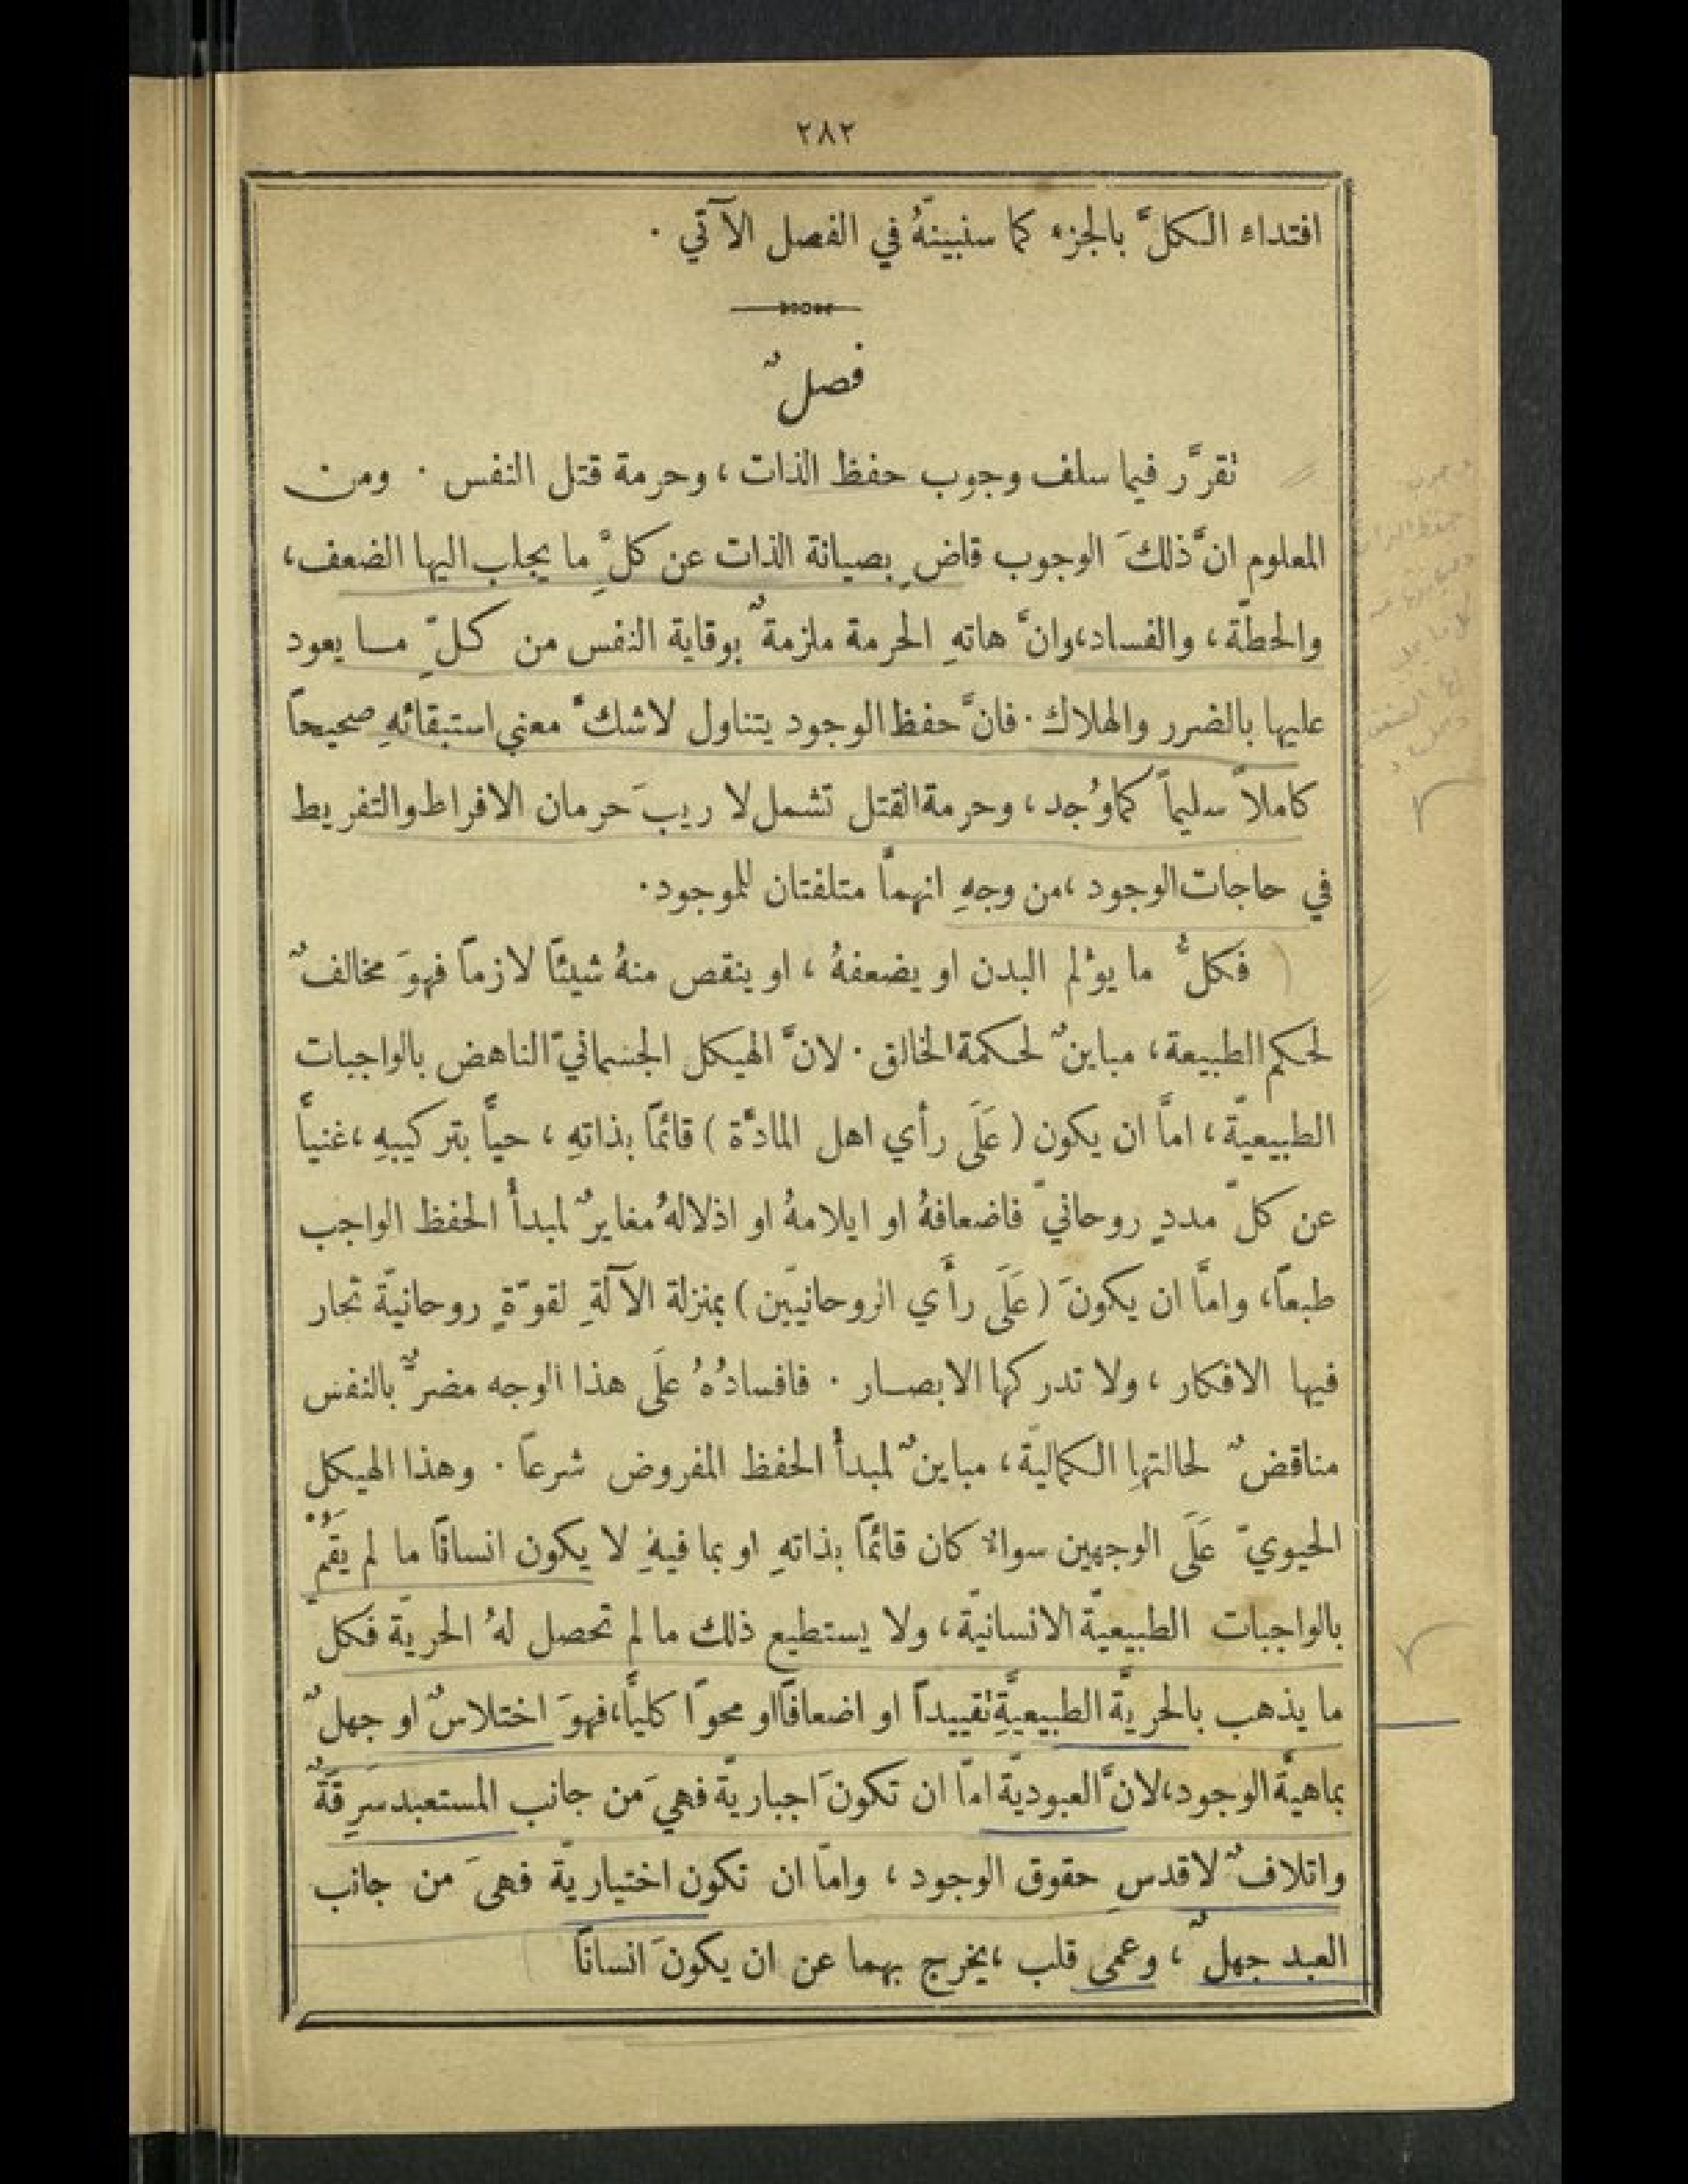 ٢٨٢
افتداء الكلّ بالجزء كما سنبينهُ في الفصل الآتي .
فصلٌ
تقرَّر فيما سلف وجوب حفظ الذات ، وحرمة قتل النفس . ومن
المعلوم انَّ ذلكَ الوجوب قاضٍ بصيانة الذات عن كلِّ ما يجلب اليها الضعف ،
والحطّة ، والفساد ، وانَّ هاتهِ الحرمة ملزمةٌ بوقاية النفس من كلِّ ما يعود
عليها بالضرر والهلاك . فانَّ حفظ الوجود يتناول لا شكَّ معنى استبقائهِ صحيحاً
كاملاً سليماً كما وُجد ، وحرمة القتل تشمل لا ريبَ حرمان الافراط والتفريط
في حاجات الوجود ، من وجهِ انهما متلفتان للموجود .
فكلُّ ما يؤلم البدن او يضعفهُ ، او ينقص منهُ شيئًا لازماً فهوَ مخالفٌ
لحكم الطبيعة ، مباينٌ لحكمة الخالق . لانَّ الهيكل الجسمانيّ الناهض بالواجبات
الطبيعيّة ، امَّا ان يكون ( عَلَى رأي اهل المادَّة ) قائمًا بذاتهِ ، حيّاً بتركيبهِ ، غنيّاً
عن كلّ مددٍ روحانيّ فاضعافهُ او ايلامهُ او اذلالهُ مغايرٌ لمبدأ الحفظ الواجب
طبعاً ، وامَّا ان يكونَ ( عَلَى رأي الروحانيّين ) بمنزلة الآلةِ لقوّةٍ روحانيّة تحار
فيها الافكار ، ولا تدركها الابصار . فافسادُهُ عَلَى هذا الوجه مضرٌّ بالنفس
مناقضٌ لحالتها الكماليّة ، مباينٌ لمبدأ الحفظ المفروض شرعاً . وهذا الهيكل
الحيويّ عَلَى الوجهين سواءٌ كان قائمًا بذاتهِ او بما فيهِ لا يكون انسانًا ما لم يَقُمْ
بالواجبات الطبيعيّة الانسانيّة ، ولا يستطيع ذلك ما لم تحصل لهُ الحريّة فكلّ
ما يذهب بالحريّة الطبيعيَّةِ تقييداً او اضعافًا او محوًا كليًّا ، فهوَ اختلاسٌ او جهلٌ
بماهيّة الوجود ، لانَّ العبوديّة امّا ان تكونَ اجباريّة فهيَ من جانب المستعبد سَرِقَةٌ
واتلافٌ لاقدسِ حقوق الوجود ، وامّا ان تكون اختياريّة فهيَ من جانب
العبد جهلٌ ، وعمى قلب ، يخرج بهما عن ان يكونَ انسانًا